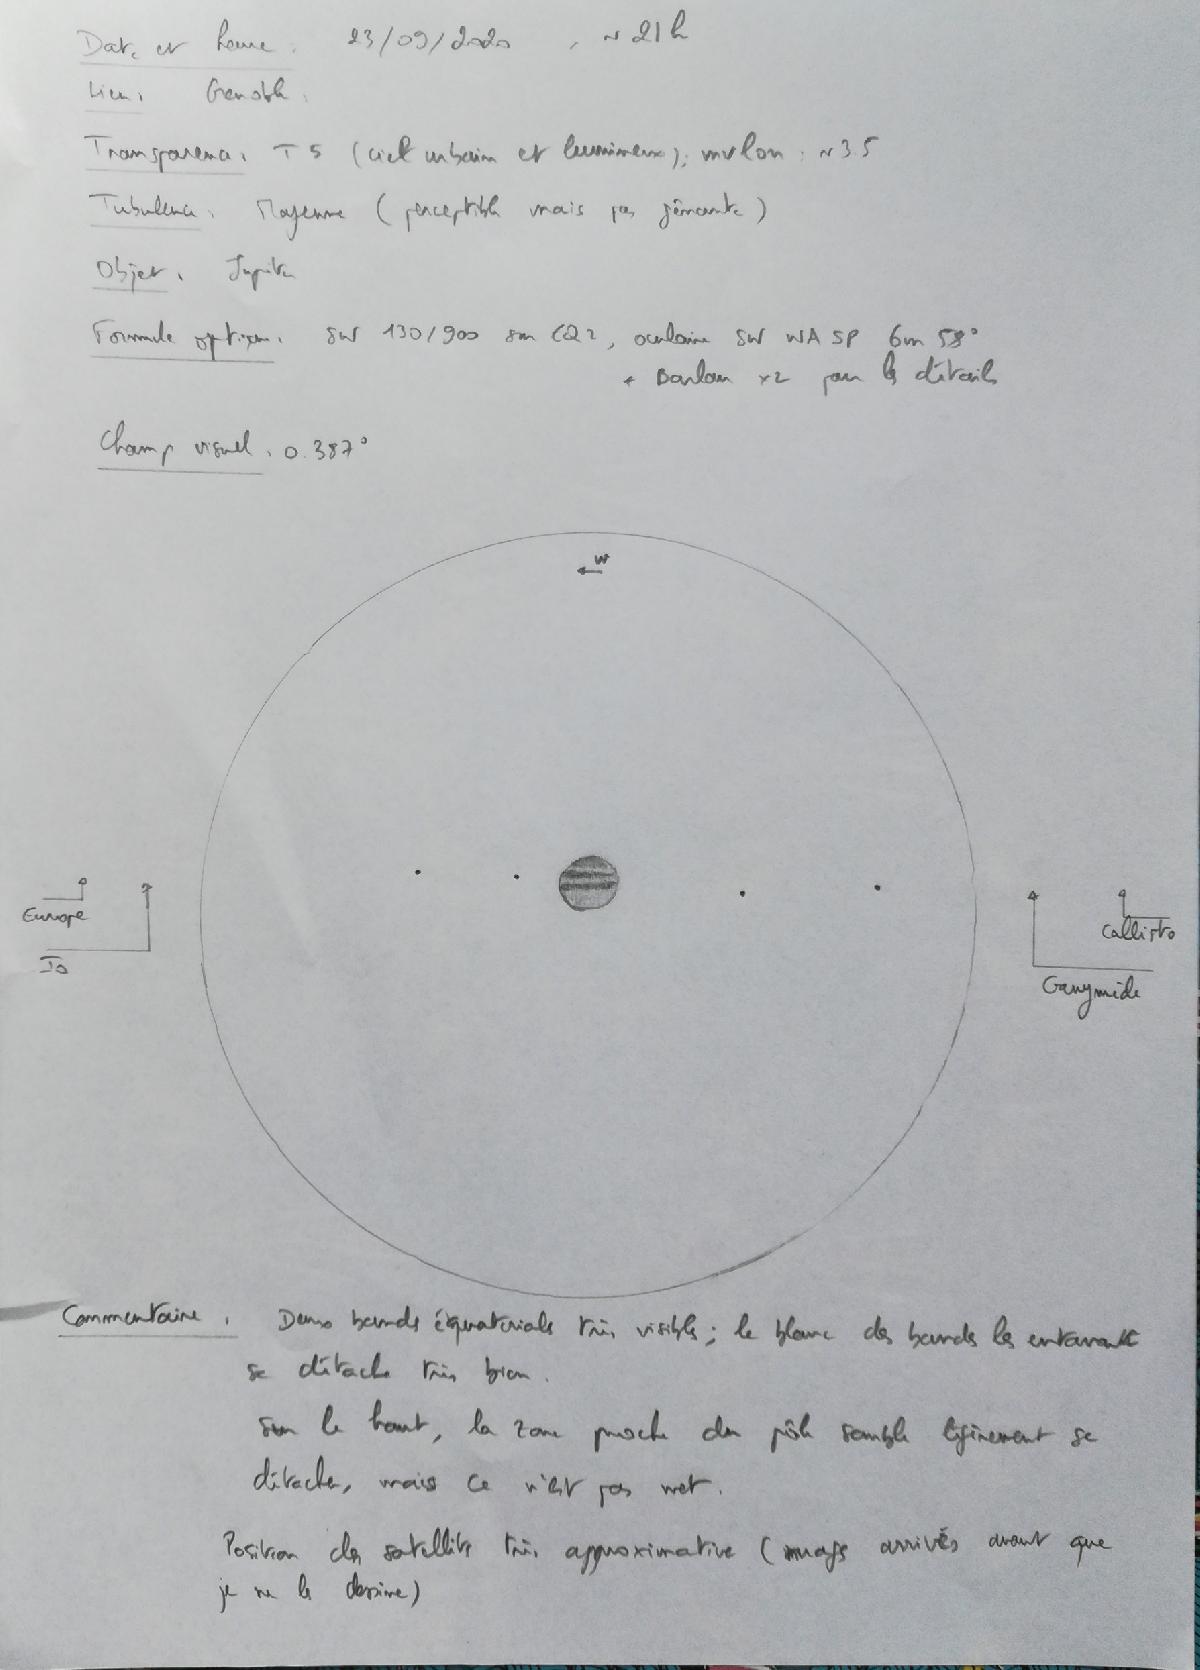 Date et heure : 23/09/2020 , ~ 21h
Lieu : Grenoble.
Transparence : T5 (ciel urbain et lumineux); mvlon : ~3.5
Turbulence : Moyenne (perceptible mais pas gênante)
Objet : Jupiter
Formule optique : SW 130/900 sur EQ2, oculaire SW WA SP 6mm 58°
+ Barlow x2 pour les détails
Champ visuel : 0.387°
W
Europe
Io
Callisto
Ganymède
Commentaire : Deux bandes équatoriales très visibles; le blanc des bandes les entourant
se détache très bien.
Sur le haut, la zone proche du pôle semble légèrement se
détacher, mais ce n'est pas net.
Position des satellites très approximative (nuages arrivés avant que
je ne les dessine)